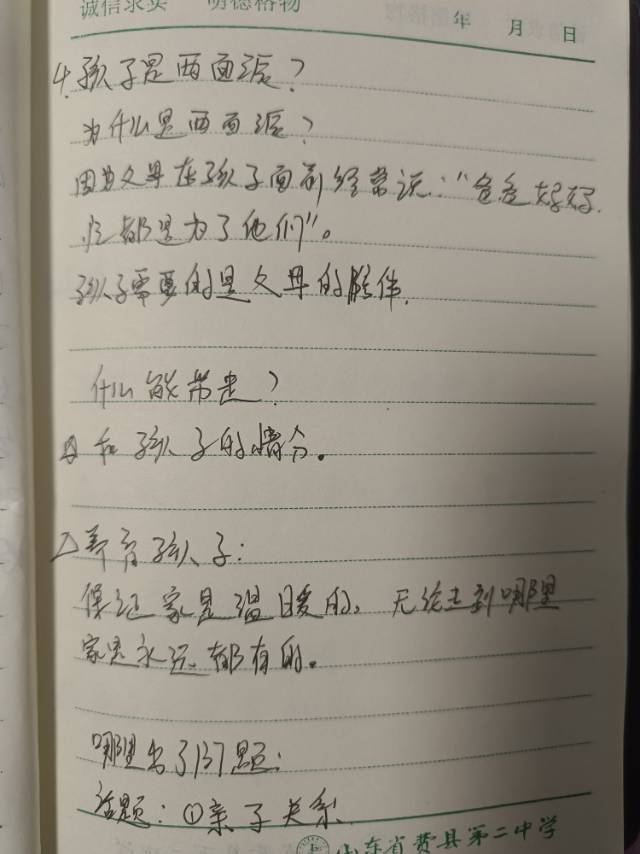 诚信求实 明德格物
年 月 日
4.孩子是两面派?
为什么是两面派?
因为父母在孩子面前经常说:“爸爸好好
忙都是为了他们”。
孩子需要的是父母的陪伴.
什么能带走?
和孩子的情分。
△养育孩子:
保证家是温暖的。无论走到哪里
家是永远都有的。
哪里出了问题:
话题:①亲子关系
山东省费县第二中学